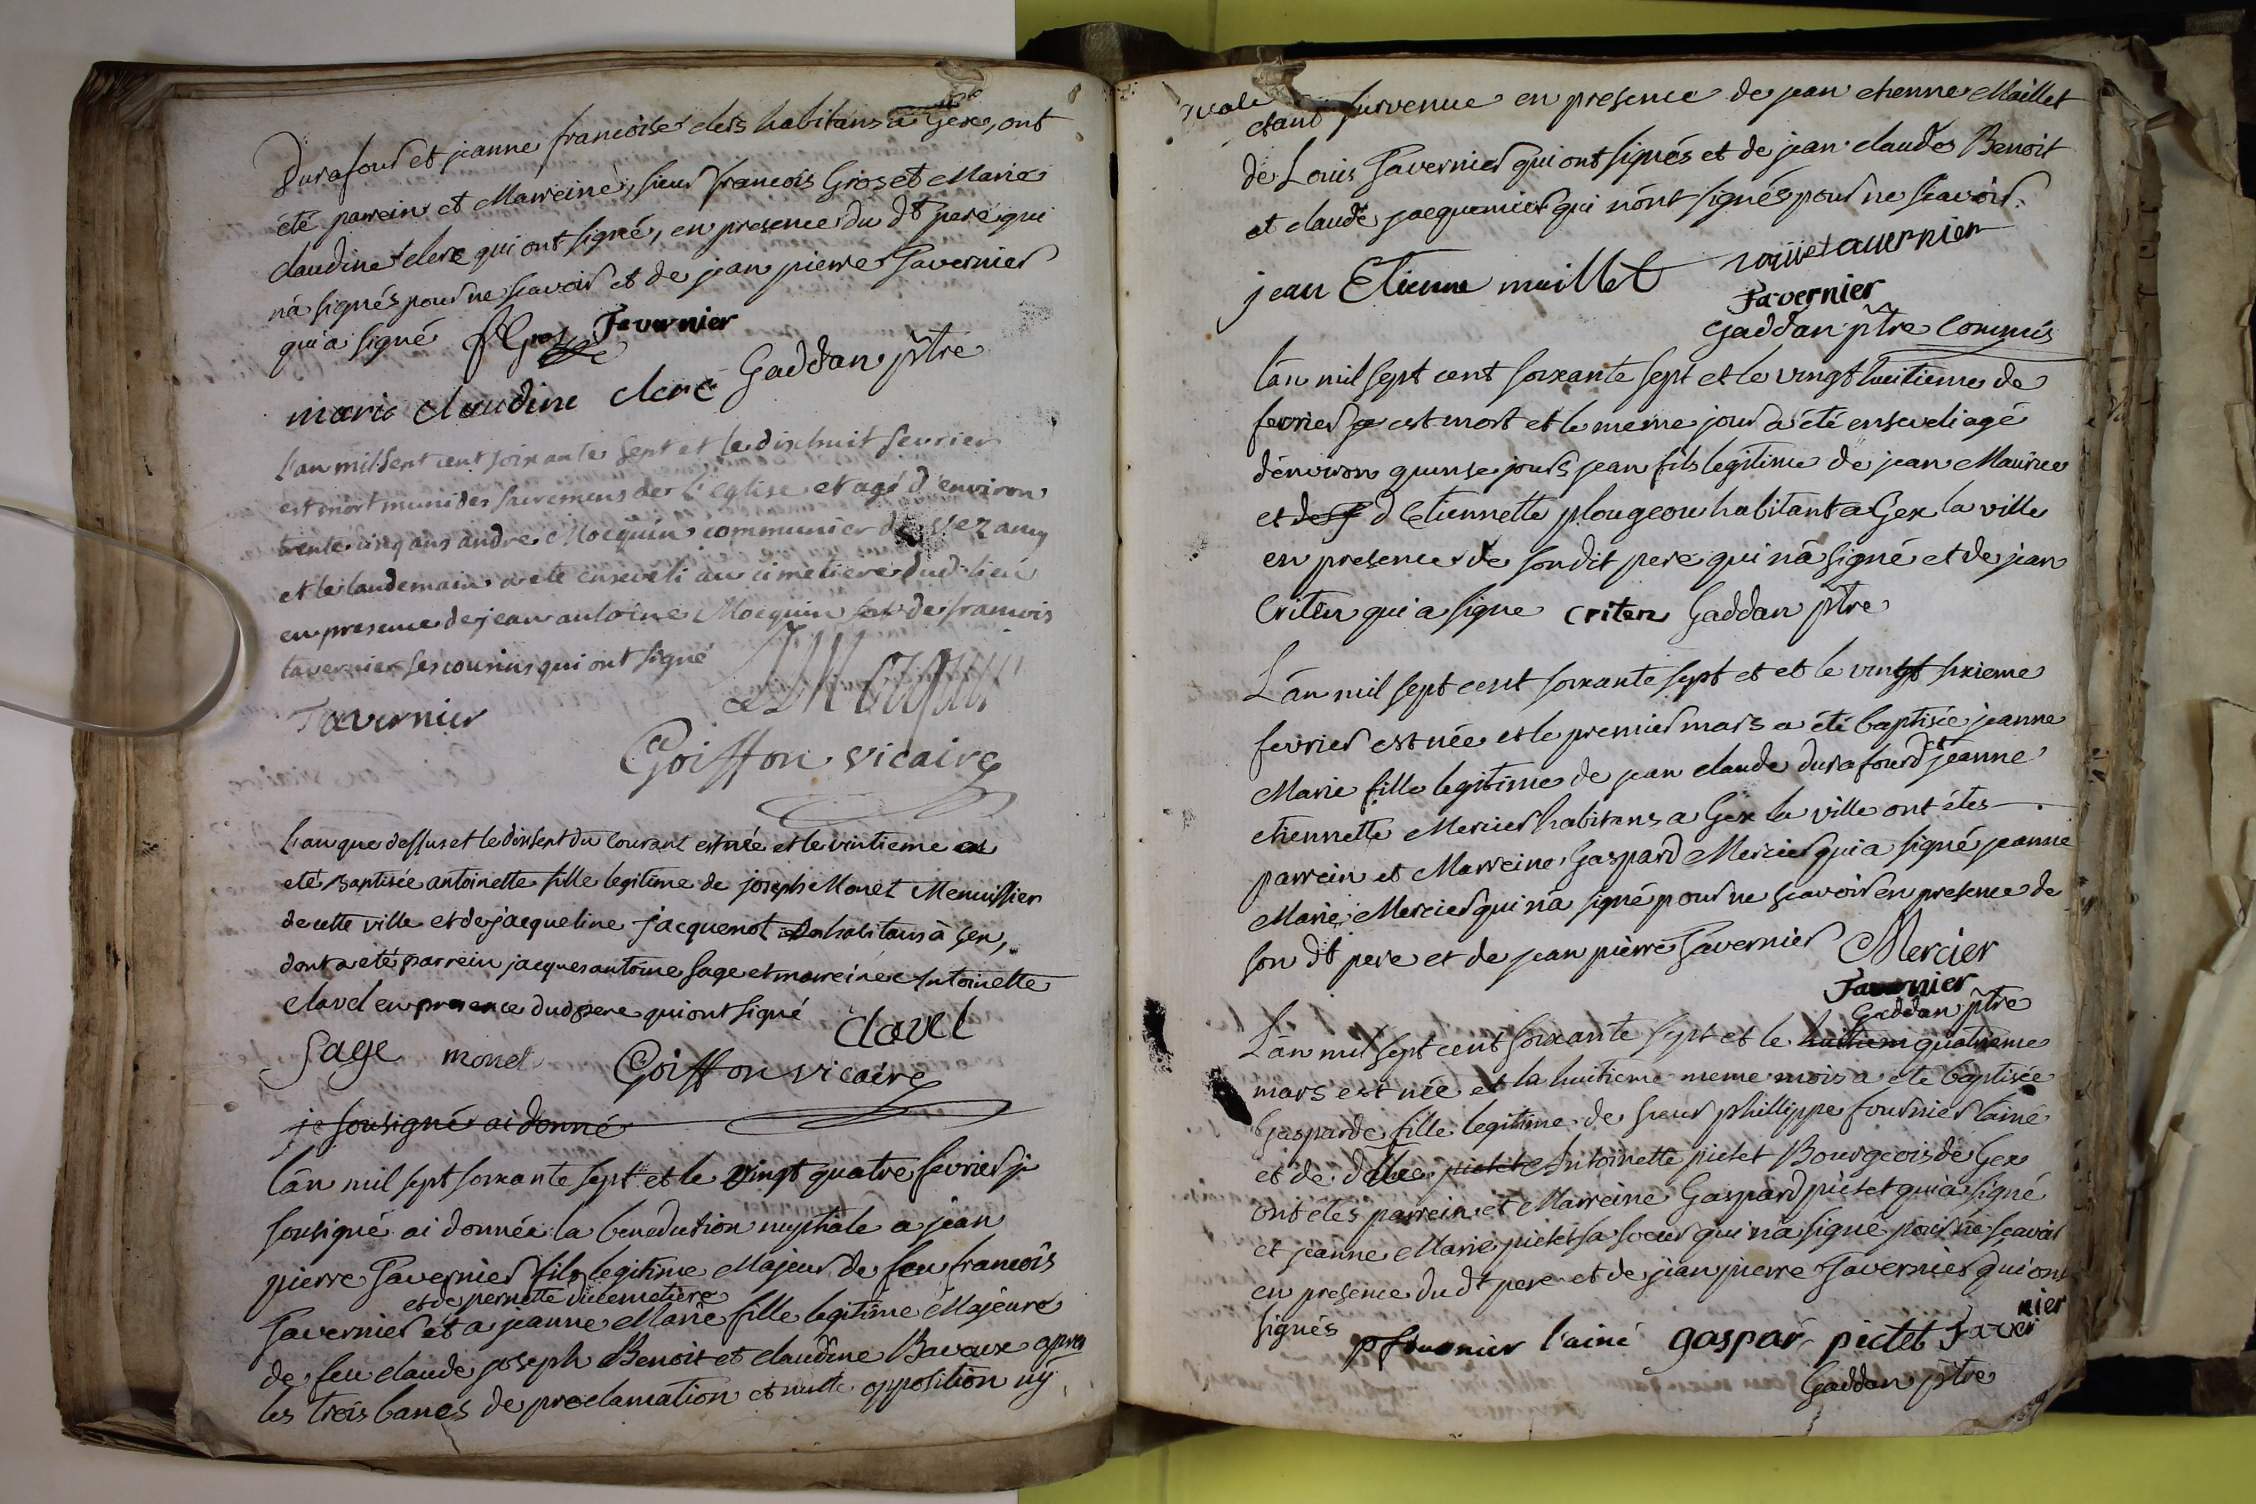 Durafour et jeanne francoise clers habitans a Gex, ont
été parrein et Marreine, sieur francois Gros et Marie
claudine clerc qui ont signé, en presence du dt pere qui
n'a signés pour ne scavoir et de jean pierre Tavernier
qui a signé fGros Tavernier
marie claudine clerc Gaddan ptre
L'an mil sept cent soixante sept et le dixhuit fevrier
est mort muni des sacremens de l'eglise et agé d'environ
trente cinq ans andre Mocquin communier de
et le landemain a ete enseveli au cimetiere dud. lieu
en presence de jean antoine Mocquin et de francois
tavernier ses cousins qui ont signé
Tavernier
Goiffon vicaire
L'an que dessus et le dixsept du courant est née et le vintieme a
eté Baptisée antoinette fille legitime de joseph Monet Menuissier
de cette ville et de jacqueline jacquenot habitans à Gex,
dont a eté parrein jacques antoine Sage et marreine Antoinette
Clavel en presence dud pere qui ont signé
Clavel
Sage monet Goiffon vicaire
je sousigné ai donné
L'an mil sept soixante sept et le vingt quatre fevrier je
sousigné ai donnée la benediction nuptiale a jean
pierre Tavernier fils legitime Majeur de feu francois
et de pernette vücemetiere
Tavernier et a jeanne Marie fille legitime Majeure
de feu claude joseph Benoit et claudine Bavoux apres
les trois bancs de proclamation et nulle opposition ny
etant survenue en presence de jean etienne Maillet
de Louis Tavernier qui ont signés et de jean claude Benoit
et claude jacquemier qui n'ont signés pour ne scavoir.
jean Etienne maillet Louis tavernier
Tavernier
Gaddan ptre commis
L'an mil sept cent soixante sept et le vingt huitieme de
fevrier est mort et le meme jour a été enseveli agé
d'environ quinse jours jean fils legitime de jean Maurice
et d'Etiennette plougeou habitant a Gex la ville
en presence de son dit pere qui n'a signé et de jean
Criten qui a signe criten Gaddan ptre
L'an mil sept cent soixante sept et et le vingt sixieme
fevrier est née et le premier mars a été baptisée jeanne
Marie fille legitime de jean claude durafourd et jeanne
etiennette Mercier habitans a Gex la ville ont étes
parrein et Marreine Gaspard Mercier qui a signé jeanne
Marie Mercier qui n'a signé pour ne scavoir en presence de
son dt pere et de jean pierre Tavernier Mercier
Tavernier
Gaddan ptre
L'an mil sept cent soixante sept et le huitiem quatrieme
mars est née et la huitieme meme mois a ete baptisée
Gasparde fille legitime de sieur phillippe fournier l'ainé
et de dlle pictet Antoinette pictet Bourgeois de Gex
ont étes parrein et Marreine Gaspard pictet qui a signé
et jeanne Marie pictet sa soeur qui n'a signé pour ne scavoir
en presence du dt pere et de jean pierre Tavernier qui ont
signés pfournier l'ainé gaspar pictet Tavernier
Gaddan ptre